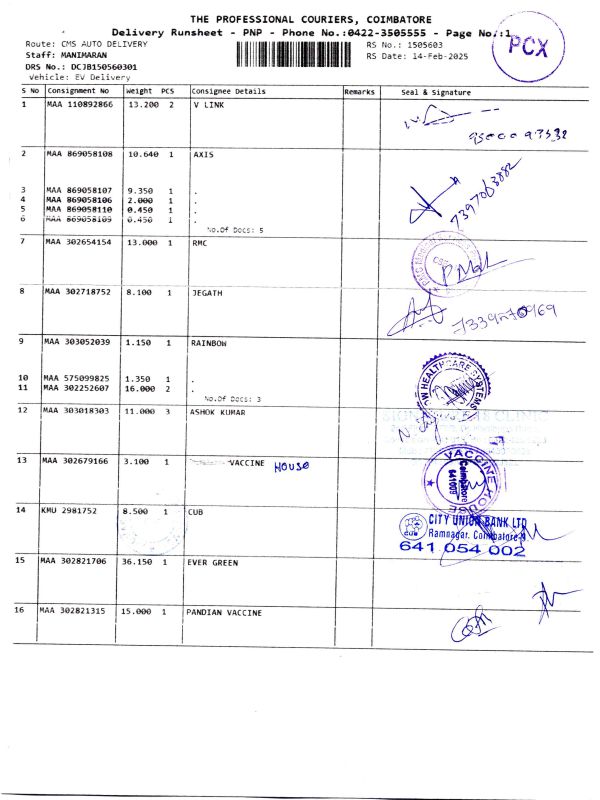 THE PROFESSIONAL COURIERS, COIMBATORE
Delivery Runsheet - PNP - Phone No.:0422-3505555 - Page No.:1
Route: CMS AUTO DELIVERY RS No.: 1505603
Staff: MANIMARAN RS Date: 14-Feb-2025
DRS No.: DCJB150560301
Vehicle: EV Delivery
PCX
S No Consignment No Weight PCS Consignee Details Remarks Seal & Signature
1 MAA 110892866 13.200 2 V LINK
2 MAA 869058108 10.640 1 AXIS
7397063882
3 MAA 869058107 9.350 1 .
4 MAA 869058106 2.000 1 .
5 MAA 869058110 0.450 1 .
6 MAA 869058109 0.450 1 .
No.Of Docs: 5
7 MAA 302654154 13.000 1 RMC
8 MAA 302718752 8.100 1 JEGATH
9 MAA 303052039 1.150 1 RAINBOW
10 MAA 575099825 1.350 1 .
11 MAA 302252607 16.000 2 .
No.Of Docs: 3
HEALTHCARE SYSTEMS
12 MAA 303018303 11.000 3 ASHOK KUMAR
13 MAA 302679166 3.100 1 VACCINE HOUSE
VACCINE HOUSE
Coimbatore
641009
14 KMU 2981752 8.500 1 CUB
CUB
CITY UNION BANK LTD
Ramnagar, Coimbatore-9
641 054 002
15 MAA 302821706 36.150 1 EVER GREEN
16 MAA 302821315 15.000 1 PANDIAN VACCINE